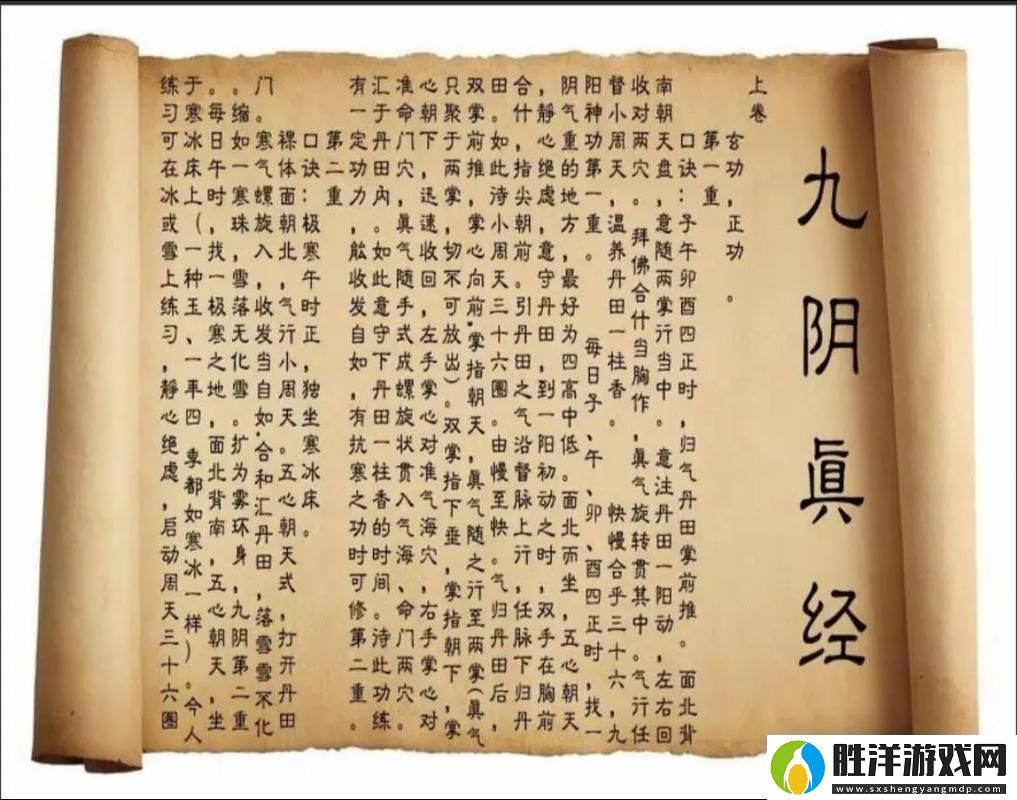 九阴眞经
上卷
玄功，正功。
第一重
口诀：子午卯酉四正时，归气丹田掌前推。面北背
南朝天盘，意随两掌行当中。意注丹田一阳动，左右回
收对两穴。拜佛合什当胸作，眞气旋转贯其中。气行任
督小周天，温养丹田一柱香。快慢合乎三十六，九
阳神功第一重。每日子、午、卯、酉四正时，找一
阴气重的地方，最好为四高中低。面北而坐，五心朝天
，静心绝虑，意守丹田，到一阳初动之时，双手在胸前
合什，指尖朝前。引丹田之气沿督脉上行，任脉下归丹
田。如此待小周天三十六圈。由慢至快。气归丹田后，
双掌前推，掌心向前.掌指朝天，眞气随之行至两掌(眞气
只聚于两掌，切不可放出)。双掌指下垂，掌指朝下，掌
心朝下，迅速收回，左手掌心对准气海穴，右手掌心对
准命门穴，眞气随手式成螺旋状贯入气海、命门两穴。
汇于丹田内。如此意守下丹田一柱香的时间。待此功练
有一定功力，能收发自如，有抗寒之功时可修第二重。
第二重
口诀：极寒午时正，独坐寒冰床。
裸体面朝北，气行小周天。五心朝天式，打开丹田
门。寒气螺旋入，收发当自如.合和汇丹田，落雪雪不化
。缩如一寒珠，雪落无化雪。扩为雾环身，九阴第二重
。每日午时，找一极寒之地，面北背南，五心朝天，坐
于寒冰床上(一种玉、一年四季都如寒冰一样)。今人
练习可在冰或雪上练习，静心绝虑，启动周天三十六圈
胜洋游戏网
www.sxshengyangmdp.com